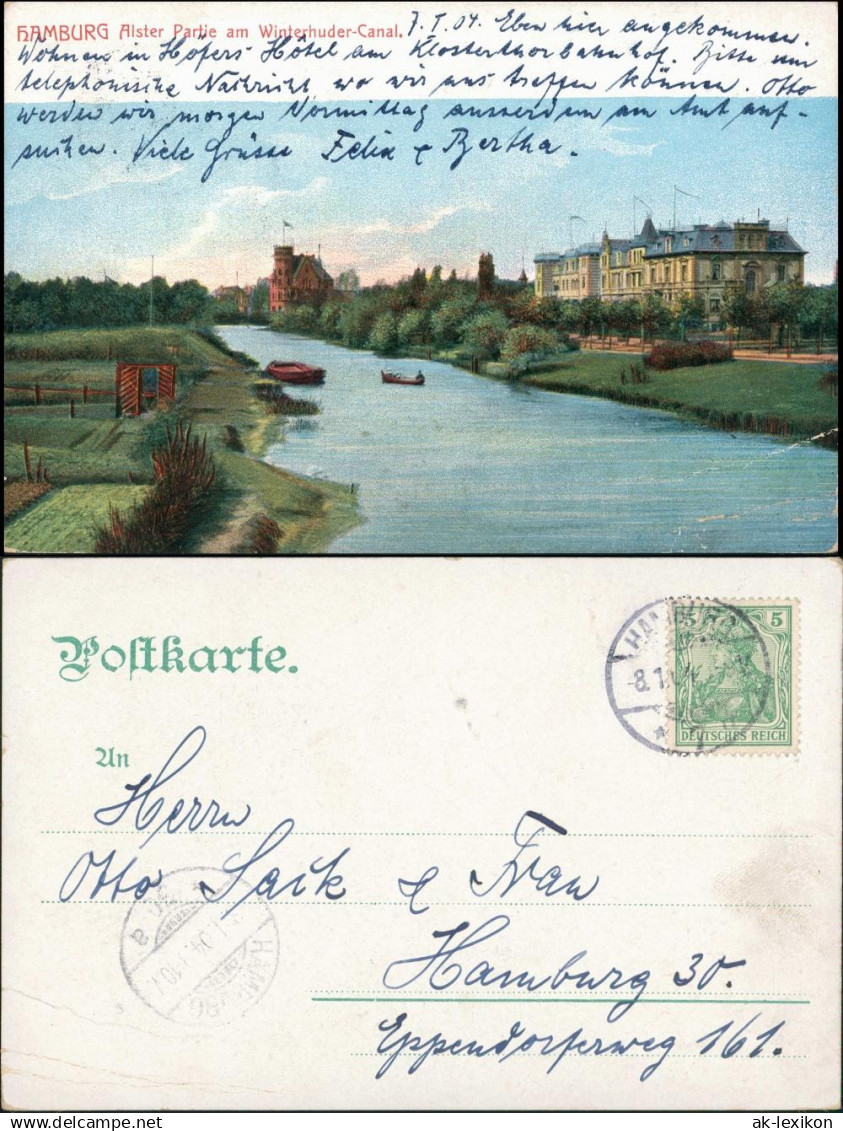 HAMBURG Alster Partie am Winterhuder-Canal. 7.I.04. Eben hier angekommen.
Wohnen in Höfers Hôtel am Klosterthorbahnhof. Bitte um
telephonische Nachricht wo wir uns treffen können. Otto
werden wir morgen Vormittag ausserdem am Amt auf-
suchen. Viele Grüsse Felix & Bertha.
Postkarte.
HAMBURG
8.1.04
5 5
DEUTSCHES REICH
An
Herrn
Otto Sack & Frau
Hamburg 30.
Eppendorferweg 161.
HAMBURG
30 a
www.ansichtskarten-lexikon.de
ak-lexikon